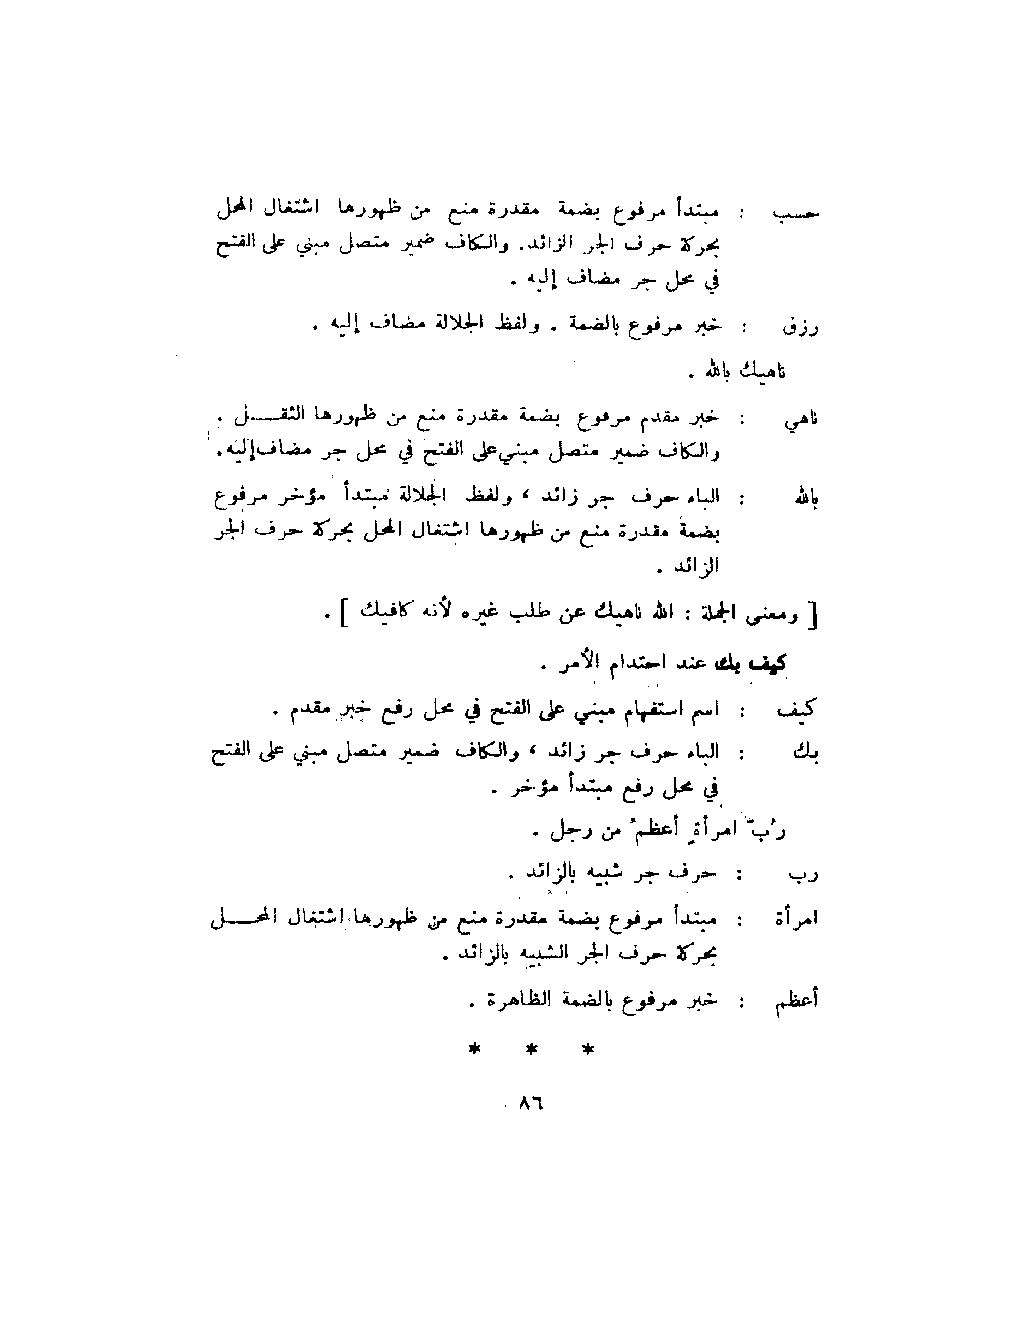 حسب : مبتدأ مرفوع بضمة مقدرة منع من ظهورها اشتغال المحل
بحركة حرف الجر الزائد. والكاف ضمير متصل مبني على الفتح
في محل جر مضاف إليه .
رزق : خبر مرفوع بالضمة . ولفظ الجلالة مضاف إليه .
ناهيك بالله .
ناهي : خبر مقدم مرفوع بضمة مقدرة منع من ظهورها الثقـــل .
والكاف ضمير متصل مبني على الفتح في محل جر مضاف إليه.
بالله : الباء حرف جر زائد ، ولفظ الجلالة مبتدأ مؤخر مرفوع
بضمة مقدرة منع من ظهورها اشتغال المحل بحركة حرف الجر
الزائد .
[ ومعنى الجملة : الله ناهيك عن طلب غيره لأنه كافيك ] .
كيف بك عند احتدام الأمر .
كيف : اسم استفهام مبني على الفتح في محل رفع خبر مقدم .
بك : الباء حرف جر زائد ، والكاف ضمير متصل مبني على الفتح
في محل رفع مبتدأ مؤخر .
رُبّ امرأةٍ أعظمُ من رجل .
رب : حرف جر شبيه بالزائد .
امرأة : مبتدأ مرفوع بضمة مقدرة منع من ظهورها اشتغال المحـــل
بحركة حرف الجر الشبيه بالزائد .
أعظم : خبر مرفوع بالضمة الظاهرة .
* * *
٨٦